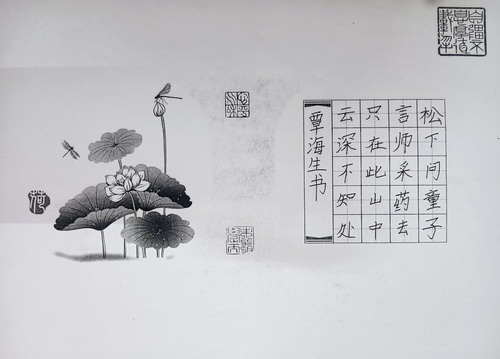 松下问童子
言师采药去
只在此山中
云深不知处
覃海生书
荷